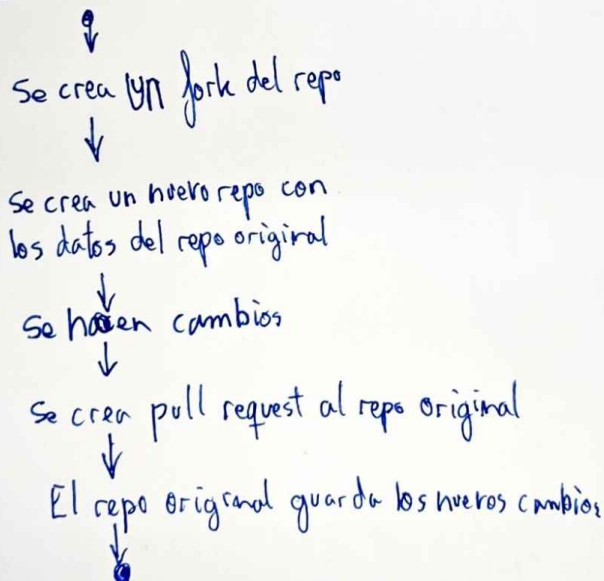 Se crea un fork del repo
Se crea un nuevo repo con
los datos del repo original
Se hacen cambios
Se crea pull request al repo original
El repo original guarda los nuevos cambios